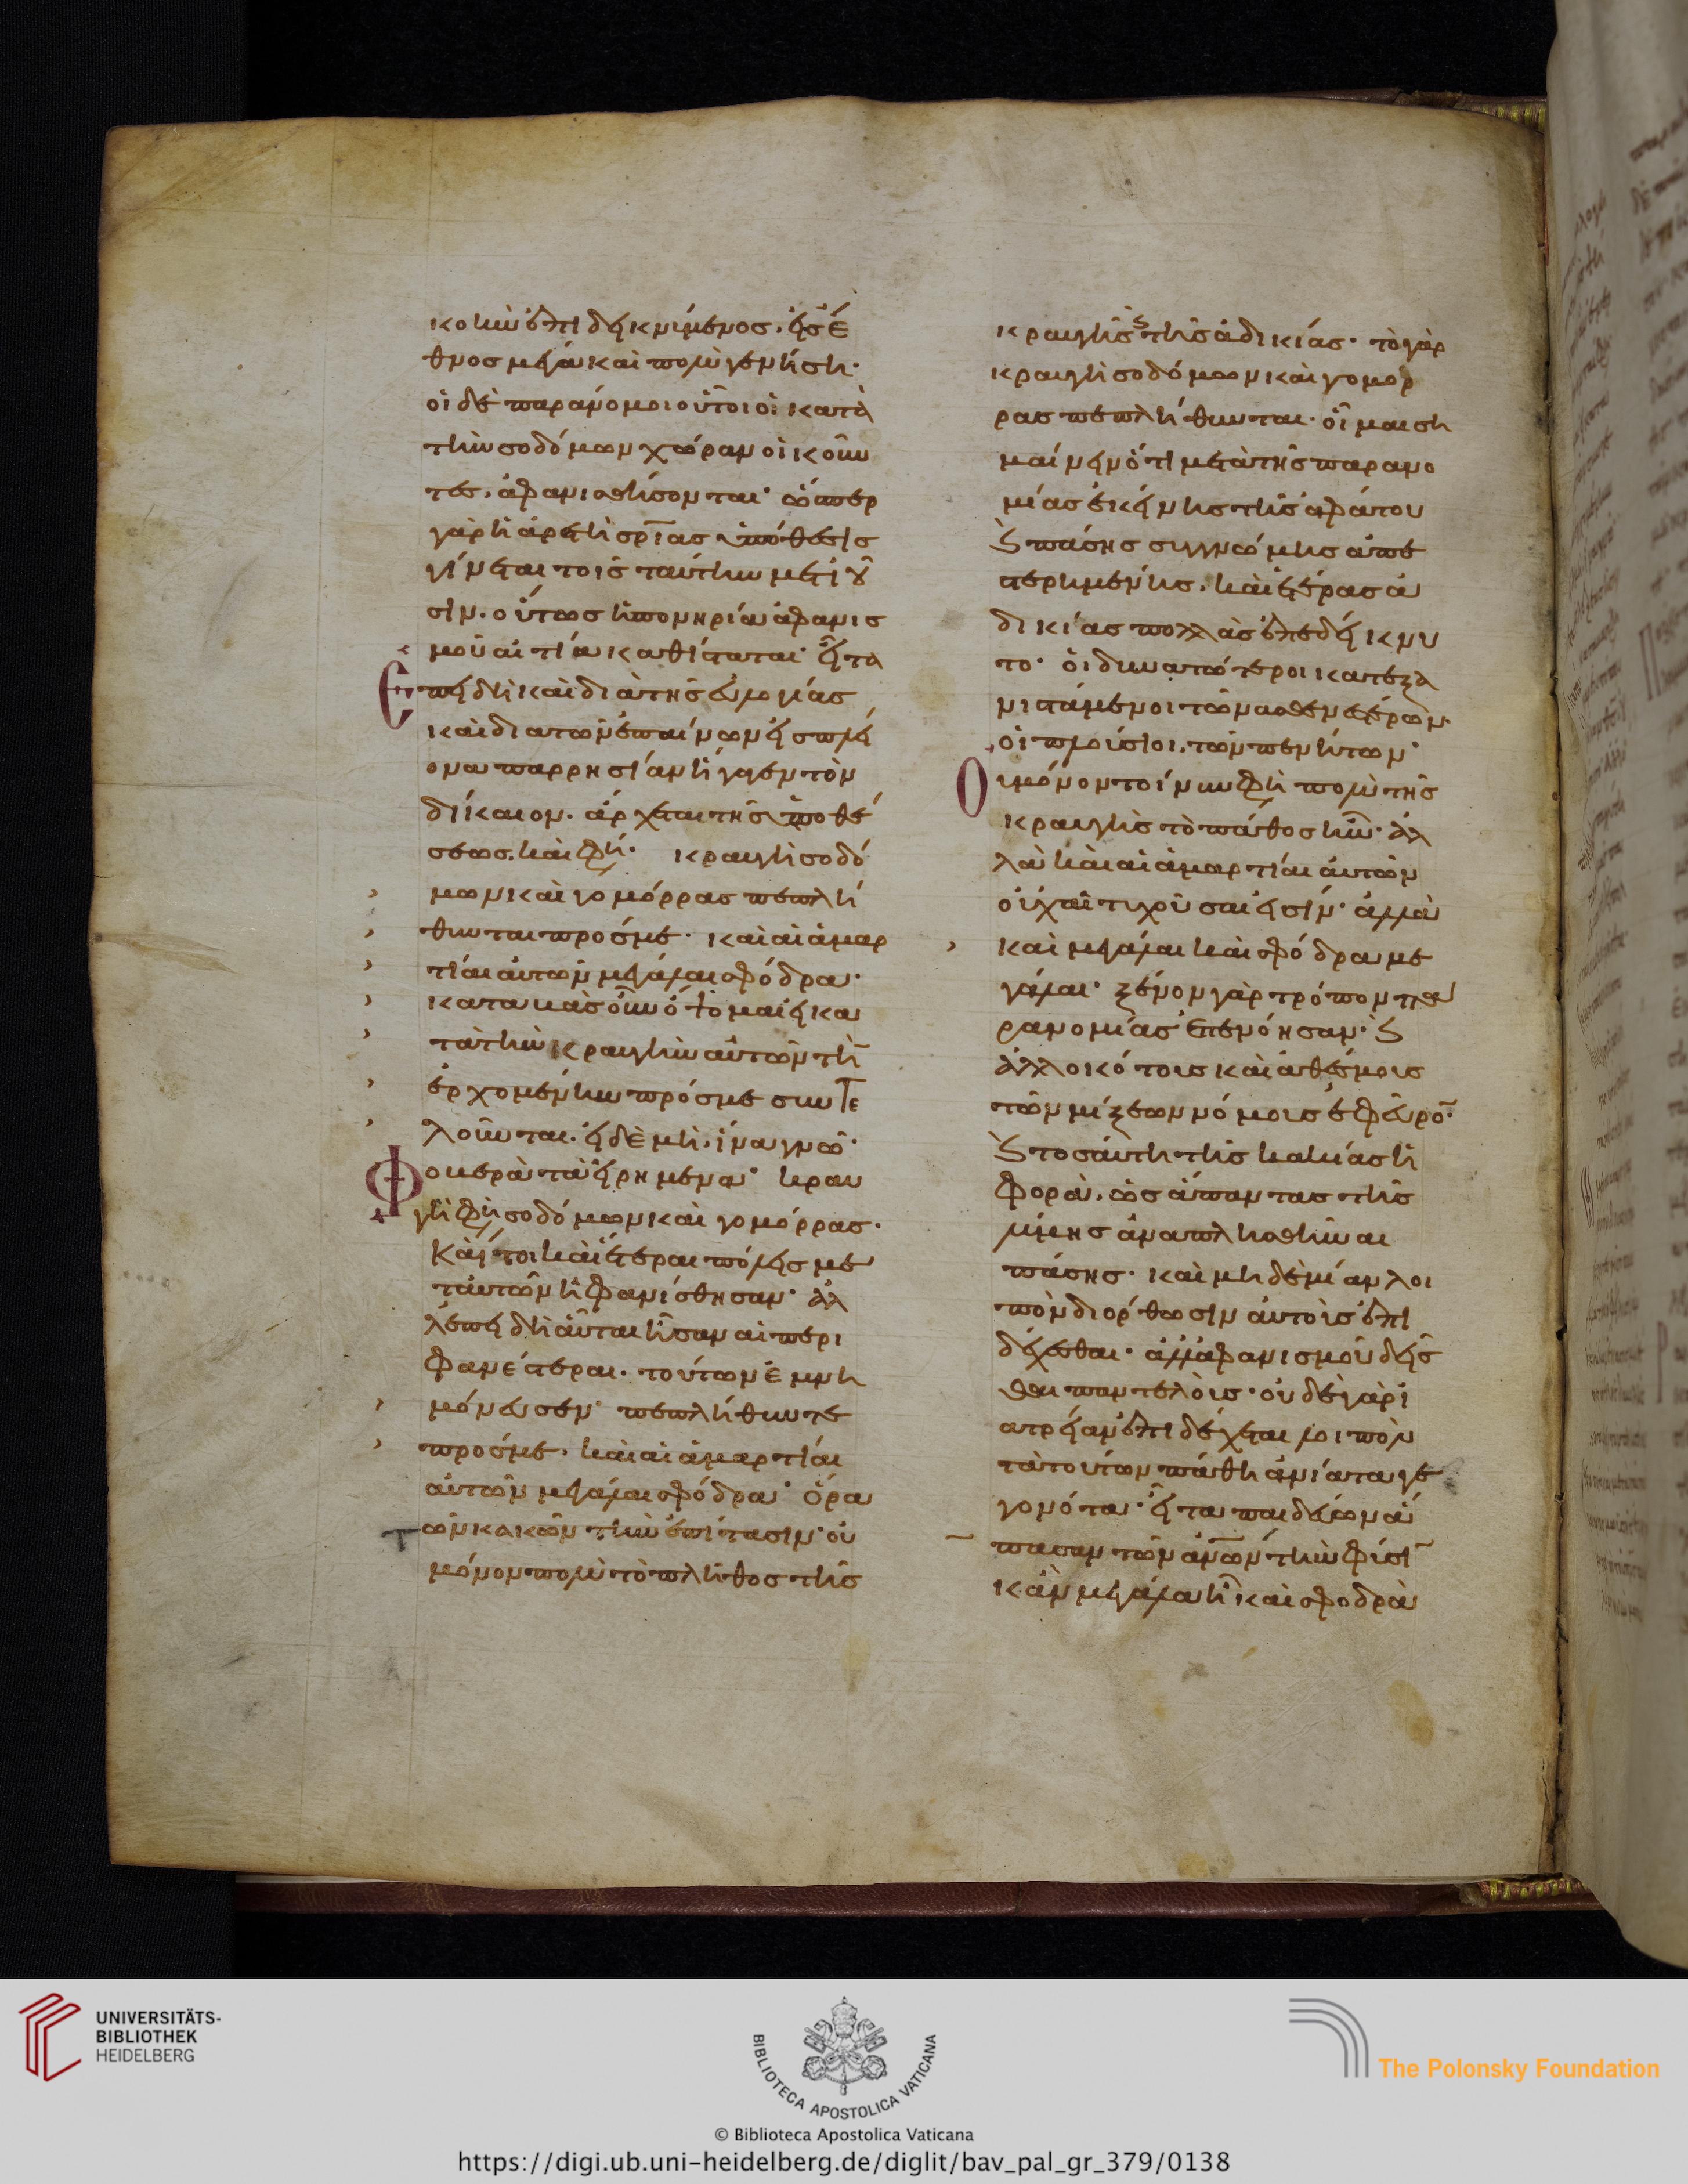 κοινὴν ἐπιδεικνύμενος. εἰς ἔ
θνος μέγα καὶ πολὺ γενήση·
οἱ δὲ παράνομοι οὗτοι οἱ κατὰ
τὴν σοδόμων χώραν οἰκοῦν
τες, ἀφανισθήσονται· ὥσπερ
γὰρ ἡ ἀρετὴ σρίας ὑπόθεσις
γίνεται τοῖς ταύτην μετιοῦ
σιν. οὕτως ἡ πονηρία ἀφανισ
μοῦ αἰτία καθίσταται· εἶτα
ἐπειδὴ καὶ διὰ τῆς εὐλογίας
καὶ διὰ τῶν ἐπαίνων εἰς πλεί
ονα παρρησίαν ἤγαγεν τὸν
δίκαιον. ἄρχεται τῆς ὑποθέ
σεως. καὶ φη· κραυγὴ σοδό
μων καὶ γομόρρας πεπλή
θυνται προς με· καὶ αἱ ἁμαρ
τίαι αὐτῶν μεγάλαι σφόδρα·
καταβὰς οὖν ὄψομαι εἰ κα
τὰ τὴν κραυγὴν αὐτῶν τὴ
ἐρχομένην πρός με συντε
λοῦνται. εἰ δὲ μὴ, ἵνα γνῶ·
Φοβερὰ τὰ εἰρημένα· κραυ
γὴ φη σοδόμων καὶ γομόρρας.
Καί τοι καὶ ἕτεραι πόλεις με
τ αὐτῶν ἠφανίσθησαν· ἀλ
λ ἐπειδὴ αὗται ἦσαν αἱ περι
φανέστεραι. τούτων ἐμνη
μόνευσεν· πεπλήθυνται
προς με. καὶ αἱ ἁμαρτίαι
αὐτῶν μεγάλαι σφόδρα· ὅρα
τῶν κακῶν τὴν ἐπίτασιν· οὐ
μόνον πολὺ τὸ πλῆθος τῆς
κραυγῆς ϛ τῆς ἀδικίας· τὸ γὰρ
κραυγὴ σοδόμων καὶ γομόρ
ρας πεπλήθυνται. οἶμαι ση
μαίνειν ὅτι μετὰ τῆς παρανο
μίας ἐκείνης τῆς ἀφάτου
ϛ πάσης συγγνώμης ἀπε
στερημένης. καὶ ἑτέρας ἀ
δικίας πολλὰς ἐπεδείκνυ
το· οἱ δυνατώτεροι κατεξα
νιστάμενοι τῶν ἀσθενεστέρων.
οἱ πλούσιοι. τῶν πενήτων·
Οὐ μόνον τοίνυν φη πολὺ τῆς
κραυγῆς τὸ πάθος ἦν· ἀλ
λὰ καὶ αἱ ἁμαρτίαι αὐτῶν
οὐχ αἱ τυχοῦσαι εἰσίν· ἀλλὰ
καὶ μεγάλαι καὶ σφόδρα με
γάλαι· ξένον γὰρ τρόπον πα
ρανομίας ἐπενόησαν· ϛ
ἀλλοκότοις καὶ ἀθέσμοις
τῶν μίξεων νόμοις ἐφεῦρο·
ϛ τοσαύτη τῆς κακίας ἡ
φορὰ. ὡς ἅπαντας τῆς
λύμης ἀναπλησθῆναι
πάσης· καὶ μηδεμίαν λοι
πὸν διόρθωσιν αὐτοῖς ἐπι
δέχεσθαι. ἀλλ ἀφανισμοῦ δεῖς
θαι παντελοῖς· οὐδὲ γὰρ ἰ
ατρείαν ἐπιδέχεται λοιπὸν
τὰ τούτων πάθη ἀνίατα γε
γονότα· εἶτα παιδεύων ἅ
πασαν τῶν ἀνων τὴν φύσι
κἂν μεγάλα ἦ καὶ σφοδρὰ
UNIVERSITÄTS-
BIBLIOTHEK
HEIDELBERG
BIBLIOTECA APOSTOLICA VATICANA
The Polonsky Foundation
© Biblioteca Apostolica Vaticana
https://digi.ub.uni-heidelberg.de/diglit/bav_pal_gr_379/0138